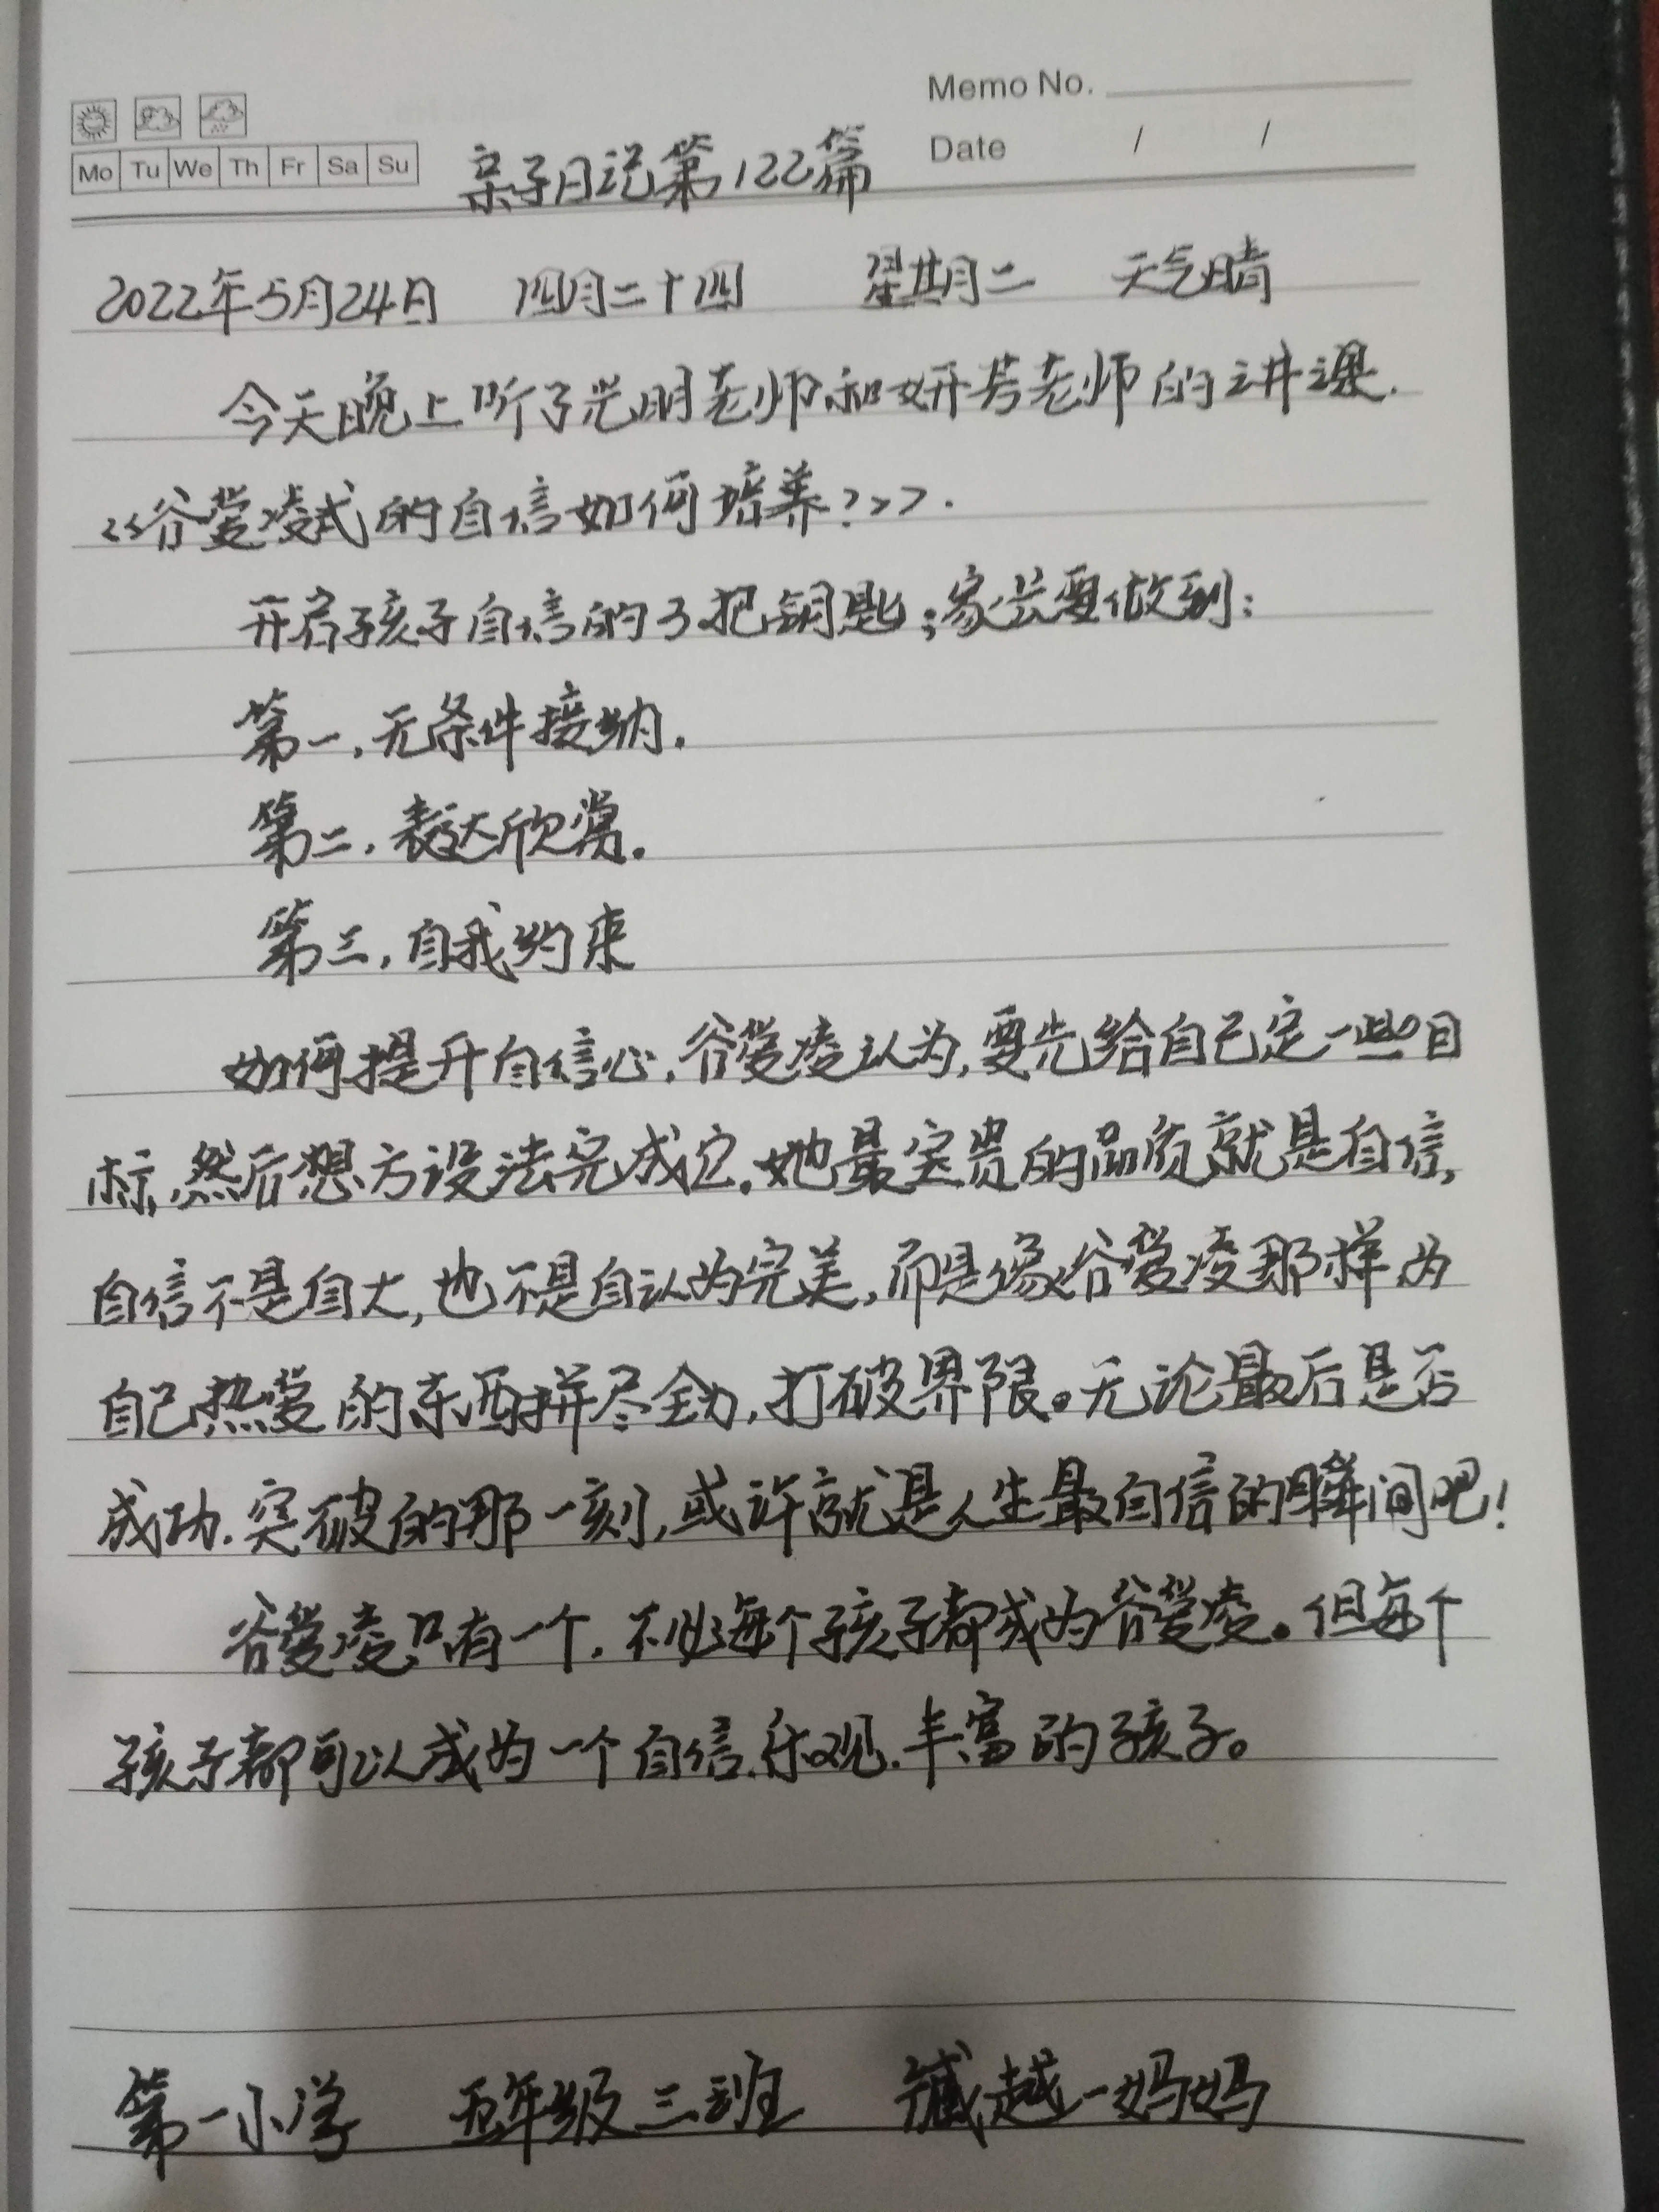 Memo No.
Mo Tu We Th Fr Sa Su
Date / /
亲子日记第122篇
2022年5月24日 四月二十四 星期二 天气晴
今天晚上听了光明老师和妍芳老师的讲课.
<<谷爱凌式的自信如何培养?>>.
开启孩子自信的3把钥匙;家长要做到:
第一,无条件接纳.
第二,表达欣赏.
第三,自我约束
如何提升自信心,谷爱凌认为,要先给自己定一些目
标,然后想方设法完成它.她最宝贵的品质就是自信,
自信不是自大,也不是自认为完美,而是像谷爱凌那样为
自己热爱的东西拼尽全力,打破界限。无论最后是否
成功.突破的那一刻,或许就是人生最自信的瞬间吧!
谷爱凌只有一个,不必每个孩子都成为谷爱凌。但每个
孩子都可以成为一个自信.乐观.丰富的孩子。
第一小学 五年级三班 越一妈妈